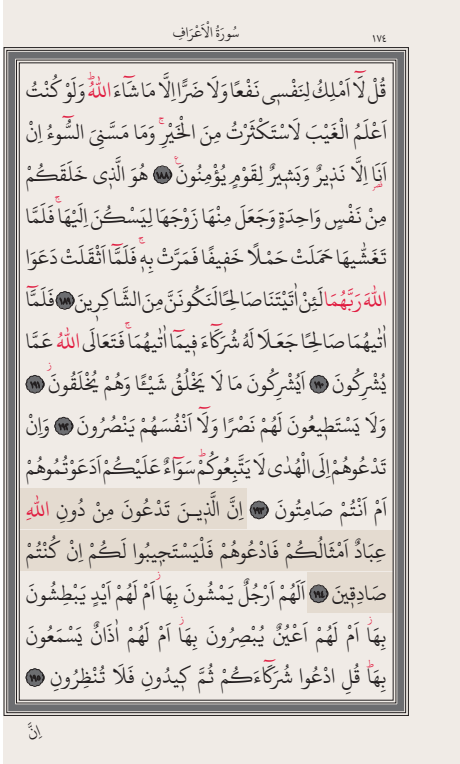 سُورَةُ الْاَعْرَافِ
١٧٤
قُلْ لَٓا اَمْلِكُ لِنَفْسٖى نَفْعًا وَلَا ضَرًّا اِلَّا مَا شَٓاءَ اللّٰهُؕ وَلَوْ كُنْتُ
اَعْلَمُ الْغَيْبَ لَاسْتَكْثَرْتُ مِنَ الْخَيْرِۚ وَمَا مَسَّنِىَ السُّٓوءُ اِنْ
اَنَا۬ اِلَّا نَذٖيرٌ وَبَشٖيرٌ لِقَوْمٍ يُؤْمِنُونَ ﴿١٨٨﴾ هُوَ الَّذٖى خَلَقَكُمْ
مِنْ نَفْسٍ وَاحِدَةٍ وَجَعَلَ مِنْهَا زَوْجَهَا لِيَسْكُنَ اِلَيْهَاۚ فَلَمَّا
تَغَشّٰيهَا حَمَلَتْ حَمْلًا خَفٖيفًا فَمَرَّتْ بِهٖۚ فَلَمَّٓا اَثْقَلَتْ دَعَوَا
اللّٰهَ رَبَّهُمَا لَئِنْ اٰتَيْتَنَا صَالِحًا لَنَكُونَنَّ مِنَ الشَّاكِرٖينَ ﴿١٨٩﴾ فَلَمَّٓا
اٰتٰيهُمَا صَالِحًا جَعَلَا لَهُ شُرَكَٓاءَ فٖيمَٓا اٰتٰيهُمَاۚ فَتَعَالَى اللّٰهُ عَمَّا
يُشْرِكُونَ ﴿١٩٠﴾ اَيُشْرِكُونَ مَا لَا يَخْلُقُ شَيْـًٔا وَهُمْ يُخْلَقُونَۘ ﴿١٩١﴾
وَلَا يَسْتَطٖيعُونَ لَهُمْ نَصْرًا وَلَٓا اَنْفُسَهُمْ يَنْصُرُونَ ﴿١٩٢﴾ وَاِنْ
تَدْعُوهُمْ اِلَى الْهُدٰى لَا يَتَّبِعُوكُمْؕ سَوَٓاءٌ عَلَيْكُمْ اَدَعَوْتُمُوهُمْ
اَمْ اَنْتُمْ صَامِتُونَ ﴿١٩٣﴾ اِنَّ الَّذٖينَ تَدْعُونَ مِنْ دُونِ اللّٰهِ
عِبَادٌ اَمْثَالُكُمْ فَادْعُوهُمْ فَلْيَسْتَجٖيبُوا لَكُمْ اِنْ كُنْتُمْ
صَادِقٖينَ ﴿١٩٤﴾ اَلَهُمْ اَرْجُلٌ يَمْشُونَ بِهَاۘ اَمْ لَهُمْ اَيْدٍ يَبْطِشُونَ
بِهَاۘ اَمْ لَهُمْ اَعْيُنٌ يُبْصِرُونَ بِهَاۘ اَمْ لَهُمْ اٰذَانٌ يَسْمَعُونَ
بِهَاؕ قُلِ ادْعُوا شُرَكَٓاءَكُمْ ثُمَّ كٖيدُونِ فَلَا تُنْظِرُونِ ﴿١٩٥﴾
اِنَّ